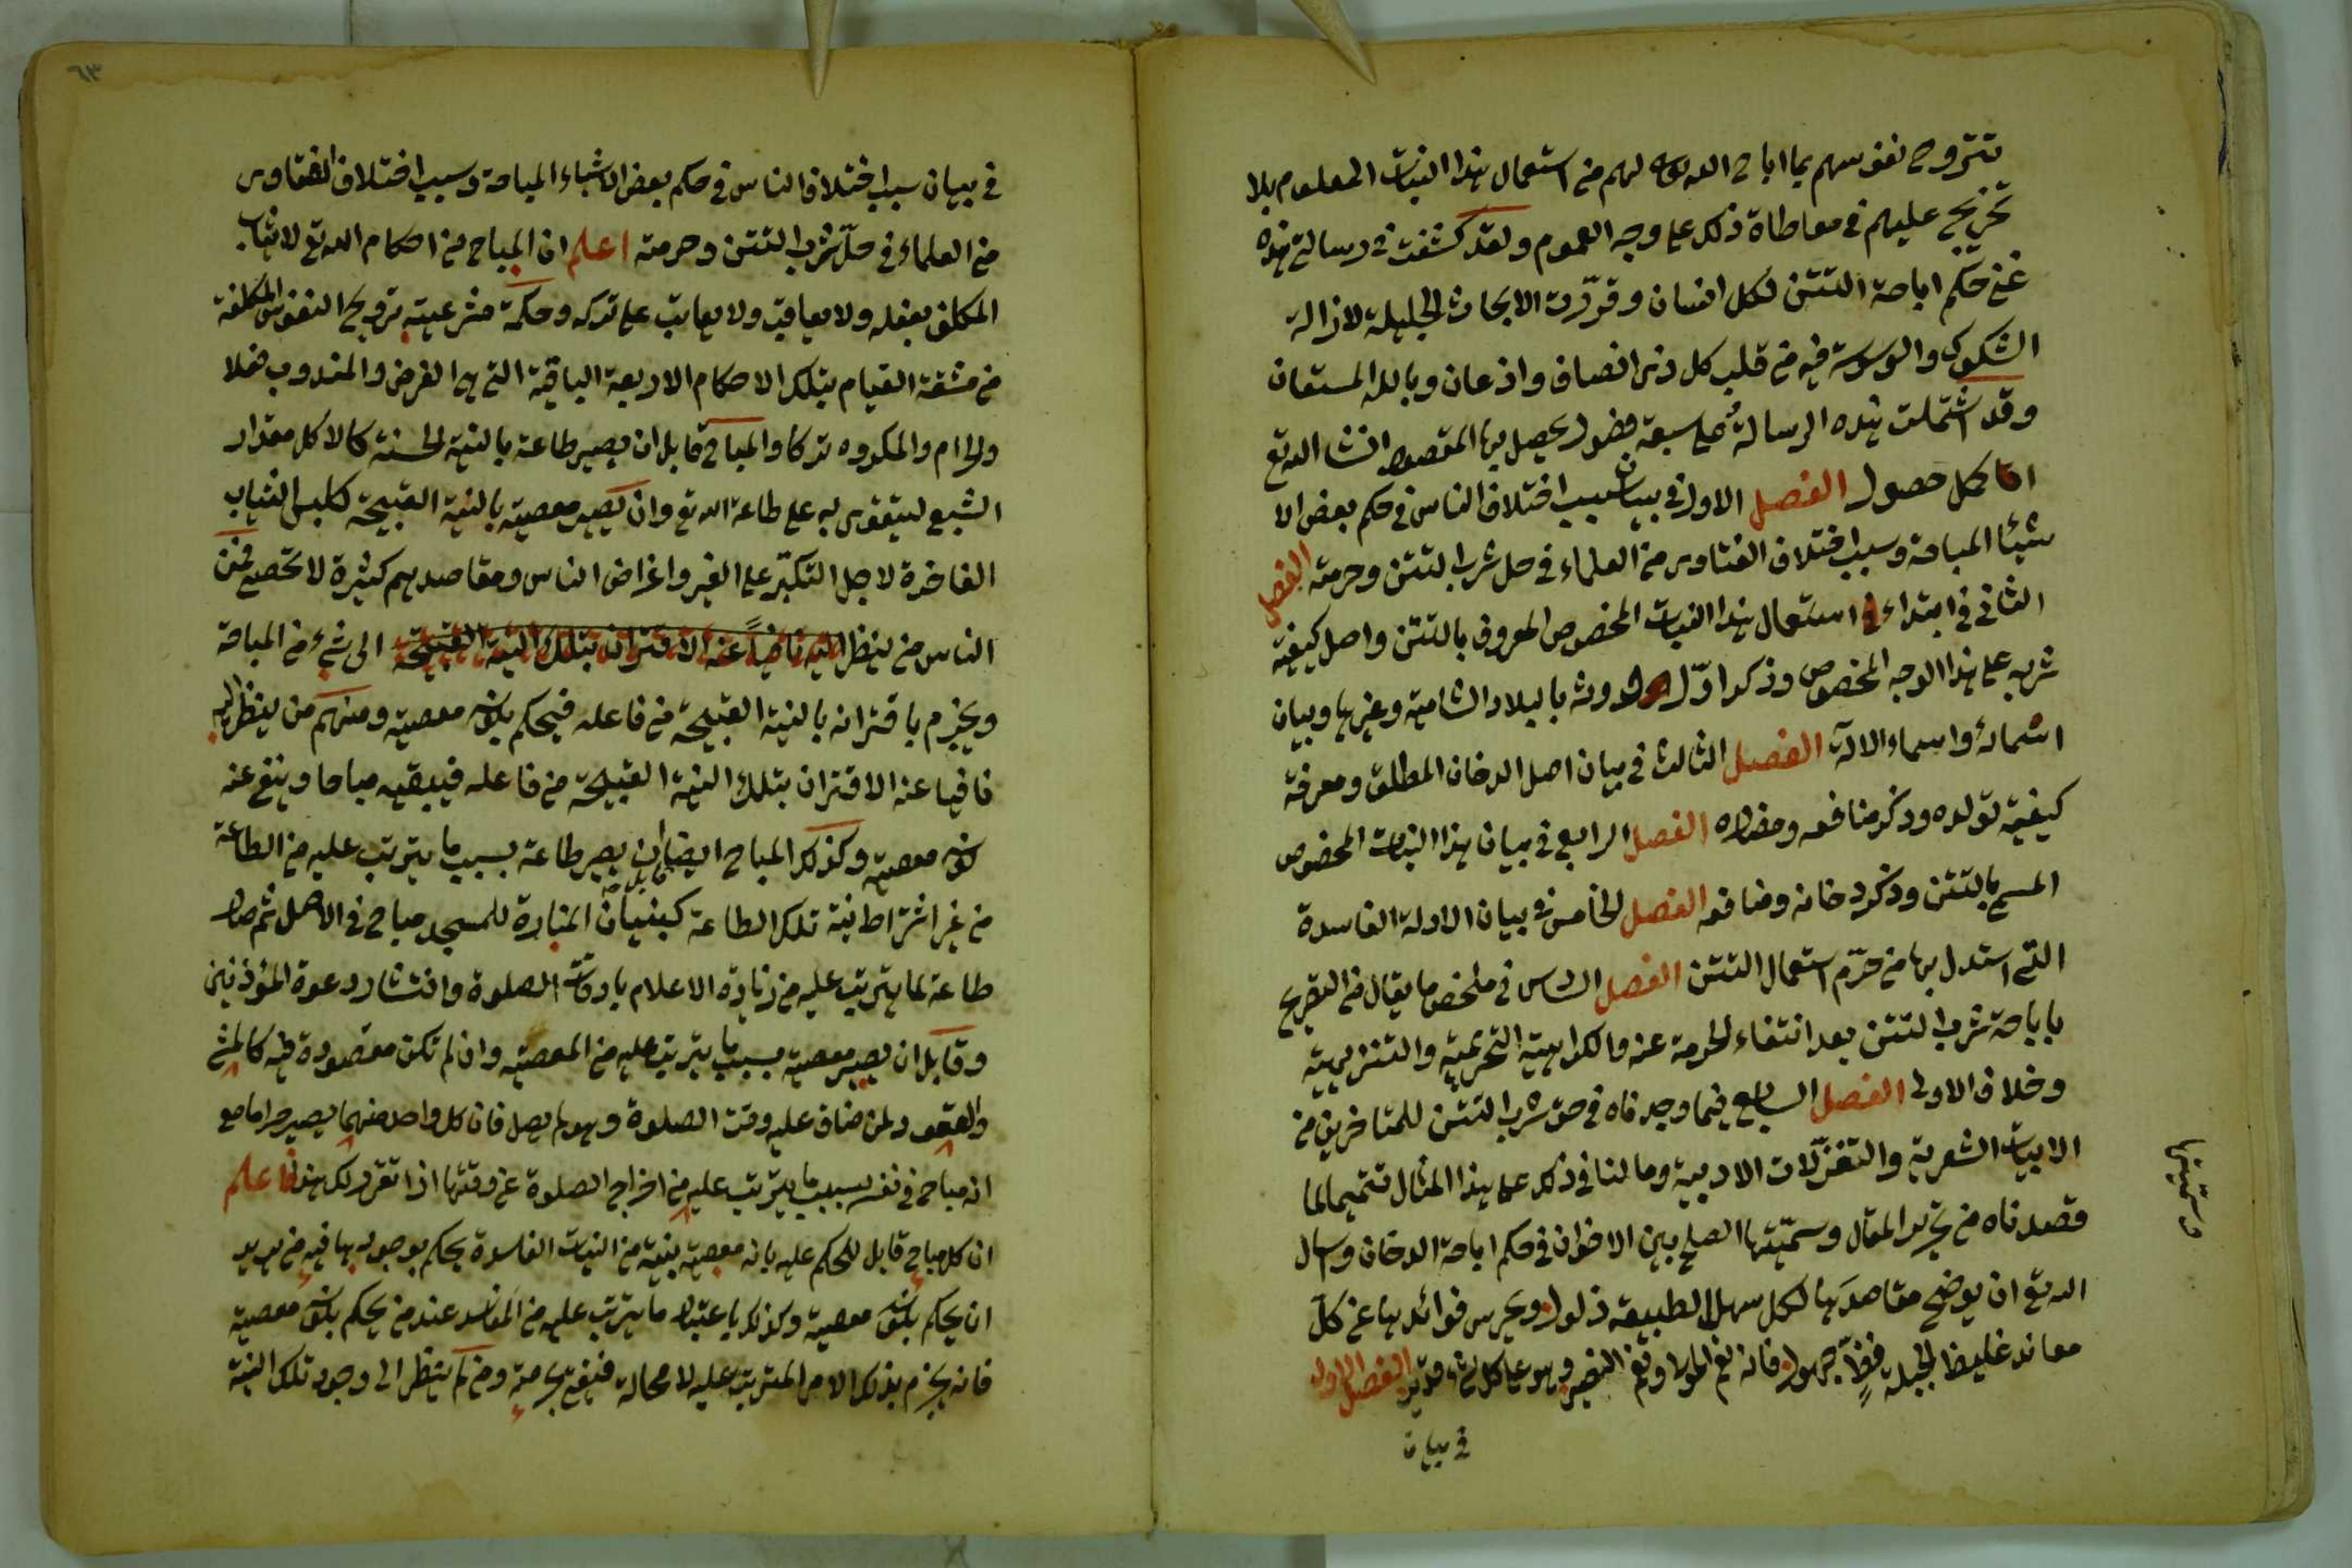 تتروح نفوسهم بما اباح الله تعالى لهم من استعمال هذا النبات المعلوم بلا
تحريج عليهم في معاطاة ذلك على وجه العموم ولقد كشفت في رسالتي هذه
عن حكم اباحة التتن لكل انسان وقررت الابحاث الجليلة لازالة
الشكوك والوسوسة فيه من قلب كل ذي انصاف واذعان وبالله المستعان
وقد اشتملت هذه الرسالة على سبعة فصول يحصل بها المقصود انشا الله تع
اكمل حصول الفصل الاول في بيان سبب اختلاف الناس في حكم بعض الا
شيئا المباحة وسبب اختلاف الفتاوى من العلماء في حل شرب التتن وحرمته الفصل
الثاني في ابتداء استعمال هذا النبات المخصوص المعروف بالتتن واصل كيفية
شربه على هذا الوجه المخصوص وذكر اوّل حدوثه بالبلاد الشامية وغيرها وبيان
اسمائه واسماء الالة الفصل الثالث في بيان اصل الدخان المطلق ومعرفة
كيفية تولده وذكر منافعه ومضاره الفصل الرابع في بيان هذا النبات المخصوص
المسمى بالتتن وذكر دخانه ومنافعه الفصل الخامس في بيان الادلة الفاسدة
التي استدل بها من حرّم استعمال التتن الفصل السادس في ملخص ما يقال من التصريح
باباحة شرب التتن بعد انتفاء الحرمة عنه والكراهية التحريمية والتنزيهية
وخلاف الاولى الفصل السابع فيما وجدناه في حق شرب التتن للمتاخرين من
الابيات الشعرية والتغزلات الادبية وما لنا في ذلك على هذا المثال تتميما لما
قصدناه من تحرير المقال وسمّيتها الصلح بين الاخوان في حكم اباحة الدخان واسال
الله تع ان يوضح مقاصدها لكل سهل الطبيعة ذلول ويحرس فوائدها عن كلّ
معاند غليظ الجبلة فظّ جهول فانه نعم المولى ونعم النصير وهو على كل شئ قدير الفصل الاول
في بيان
وسمّيتها
٦٣
في بيان سبب اختلاف الناس في حكم بعض الاشياء المباحة وسبب اختلاف الفتاوى
من العلماء في حلّ شرب التتن وحرمته اعلم ان المباح من احكام الله تع لا يثاب
المكلف بفعله ولا يعاقب ولا يعاتب على تركه وحكمة مشرعيته ترويح النفوس المكلفة
من مشقة القيام بتلك الاحكام الاربعة الباقية التي هي الفرض والمندوب فعلا
والحرام والمكروه تركا والمباح قابل ان يصير طاعة بالنية الحسنة كالاكل مقدار
الشبع ليتقوى به على طاعة الله تع وان يصير معصية بالنية القبيحة كلبس الثياب
الفاخرة لاجل التكبّر على الغير واغراض الناس ومقاصدهم كثيرة لا تحصى فمن
الناس من ينظر اليه نافياً عنه الاقتران بتلك النية القبيحة الى شئ من المباحة
ويجزم باقترانه بالنية القبيحة من فاعله فيحكم بكونه معصية ومنهم من ينظر اليه
نافيا عنه الاقتران بتلك النية القبيحة من فاعله فيبقيه مباحا وينفي عنه
كونه معصية وكذلك المباح ايضا قابل ان يصير طاعة بسبب ما يترتب عليه من الطاعة
من غير اشتراط نية تلك الطاعة كبنيان المنارة للمسجد مباح في الاصل ثم صار
طاعة لما يترتب عليه من زيادة الاعلام باوقات الصلوة وانتشار دعوة المؤذنين
وقابل ان يصير معصية بسبب ما يترتب عليه من المعصية وان لم تكن مقصودة فيه كالمشي
والقعود لمن ضاق عليه وقت الصلوة وهو لم يصل فان كل واحد منهما يصير حراما مع
انه مباح في نفسه بسبب ما يترتب عليه من اخراج الصلوة عن وقتها اذا تقرر لك هذا فاعلم
ان كل مباح قابل للحكم عليه بانه معصية بنية من النيات الفاسدة يحكم بوجودها فيه من يريد
ان يحكم بكونه معصية وكذلك باعتبار ما يترتب عليه من المفاسد عند من يحكم بكونه معصية
فانه يجزم بذلك الامر المترتب عليه لا محالة فيفتي بحرمته ومن لم ينظر الى وجود تلك النية